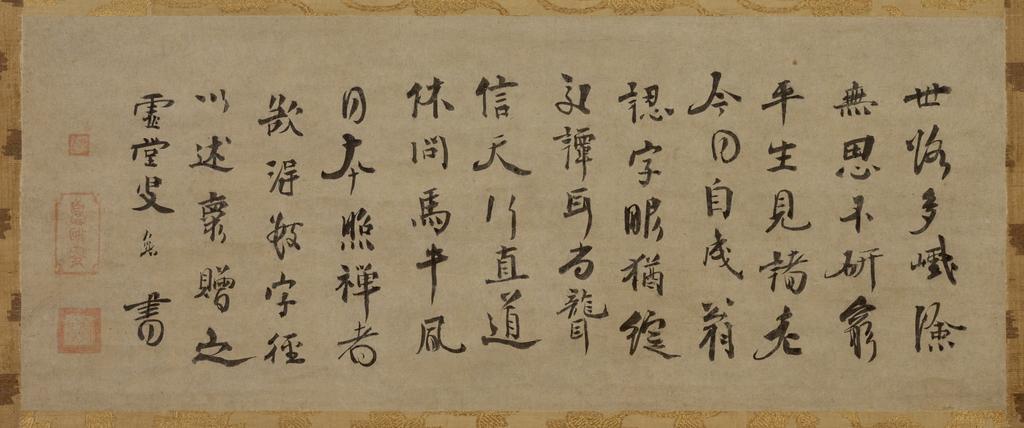 世路多巇險
無思不研窮
平生見諸老
今日自成翁
認字眼猶綻
交譚耳尚聾
信天行直道
休問馬牛風
日本照禪者
欲得數字徑
以述懷贈之
虚堂叟 書